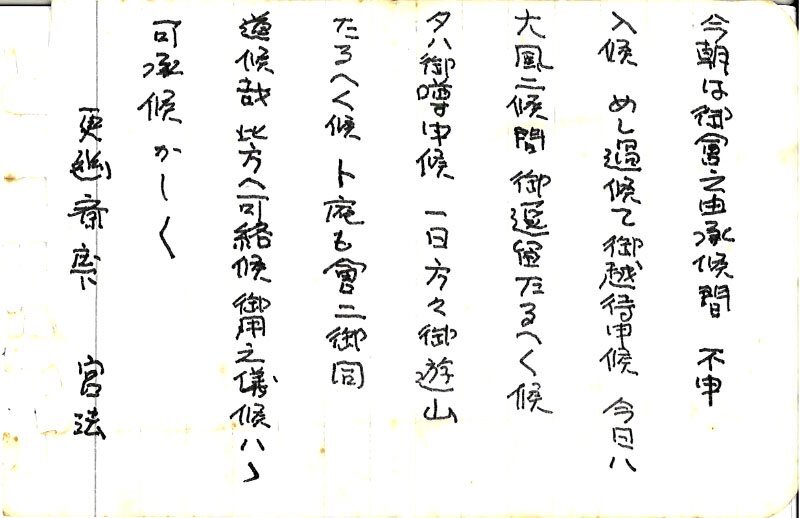 今朝は御會之由承候間　不申
入候　めし過候て御越待申候　今日ハ
大風ニ候間　御逗留たるへく候
夕ハ御噂申候　一日方々御遊山
たるへく候　卜庵も會ニ御同
道候哉　此方へ可給候　御用之儀候ハゝ
可承候かしく
宮法